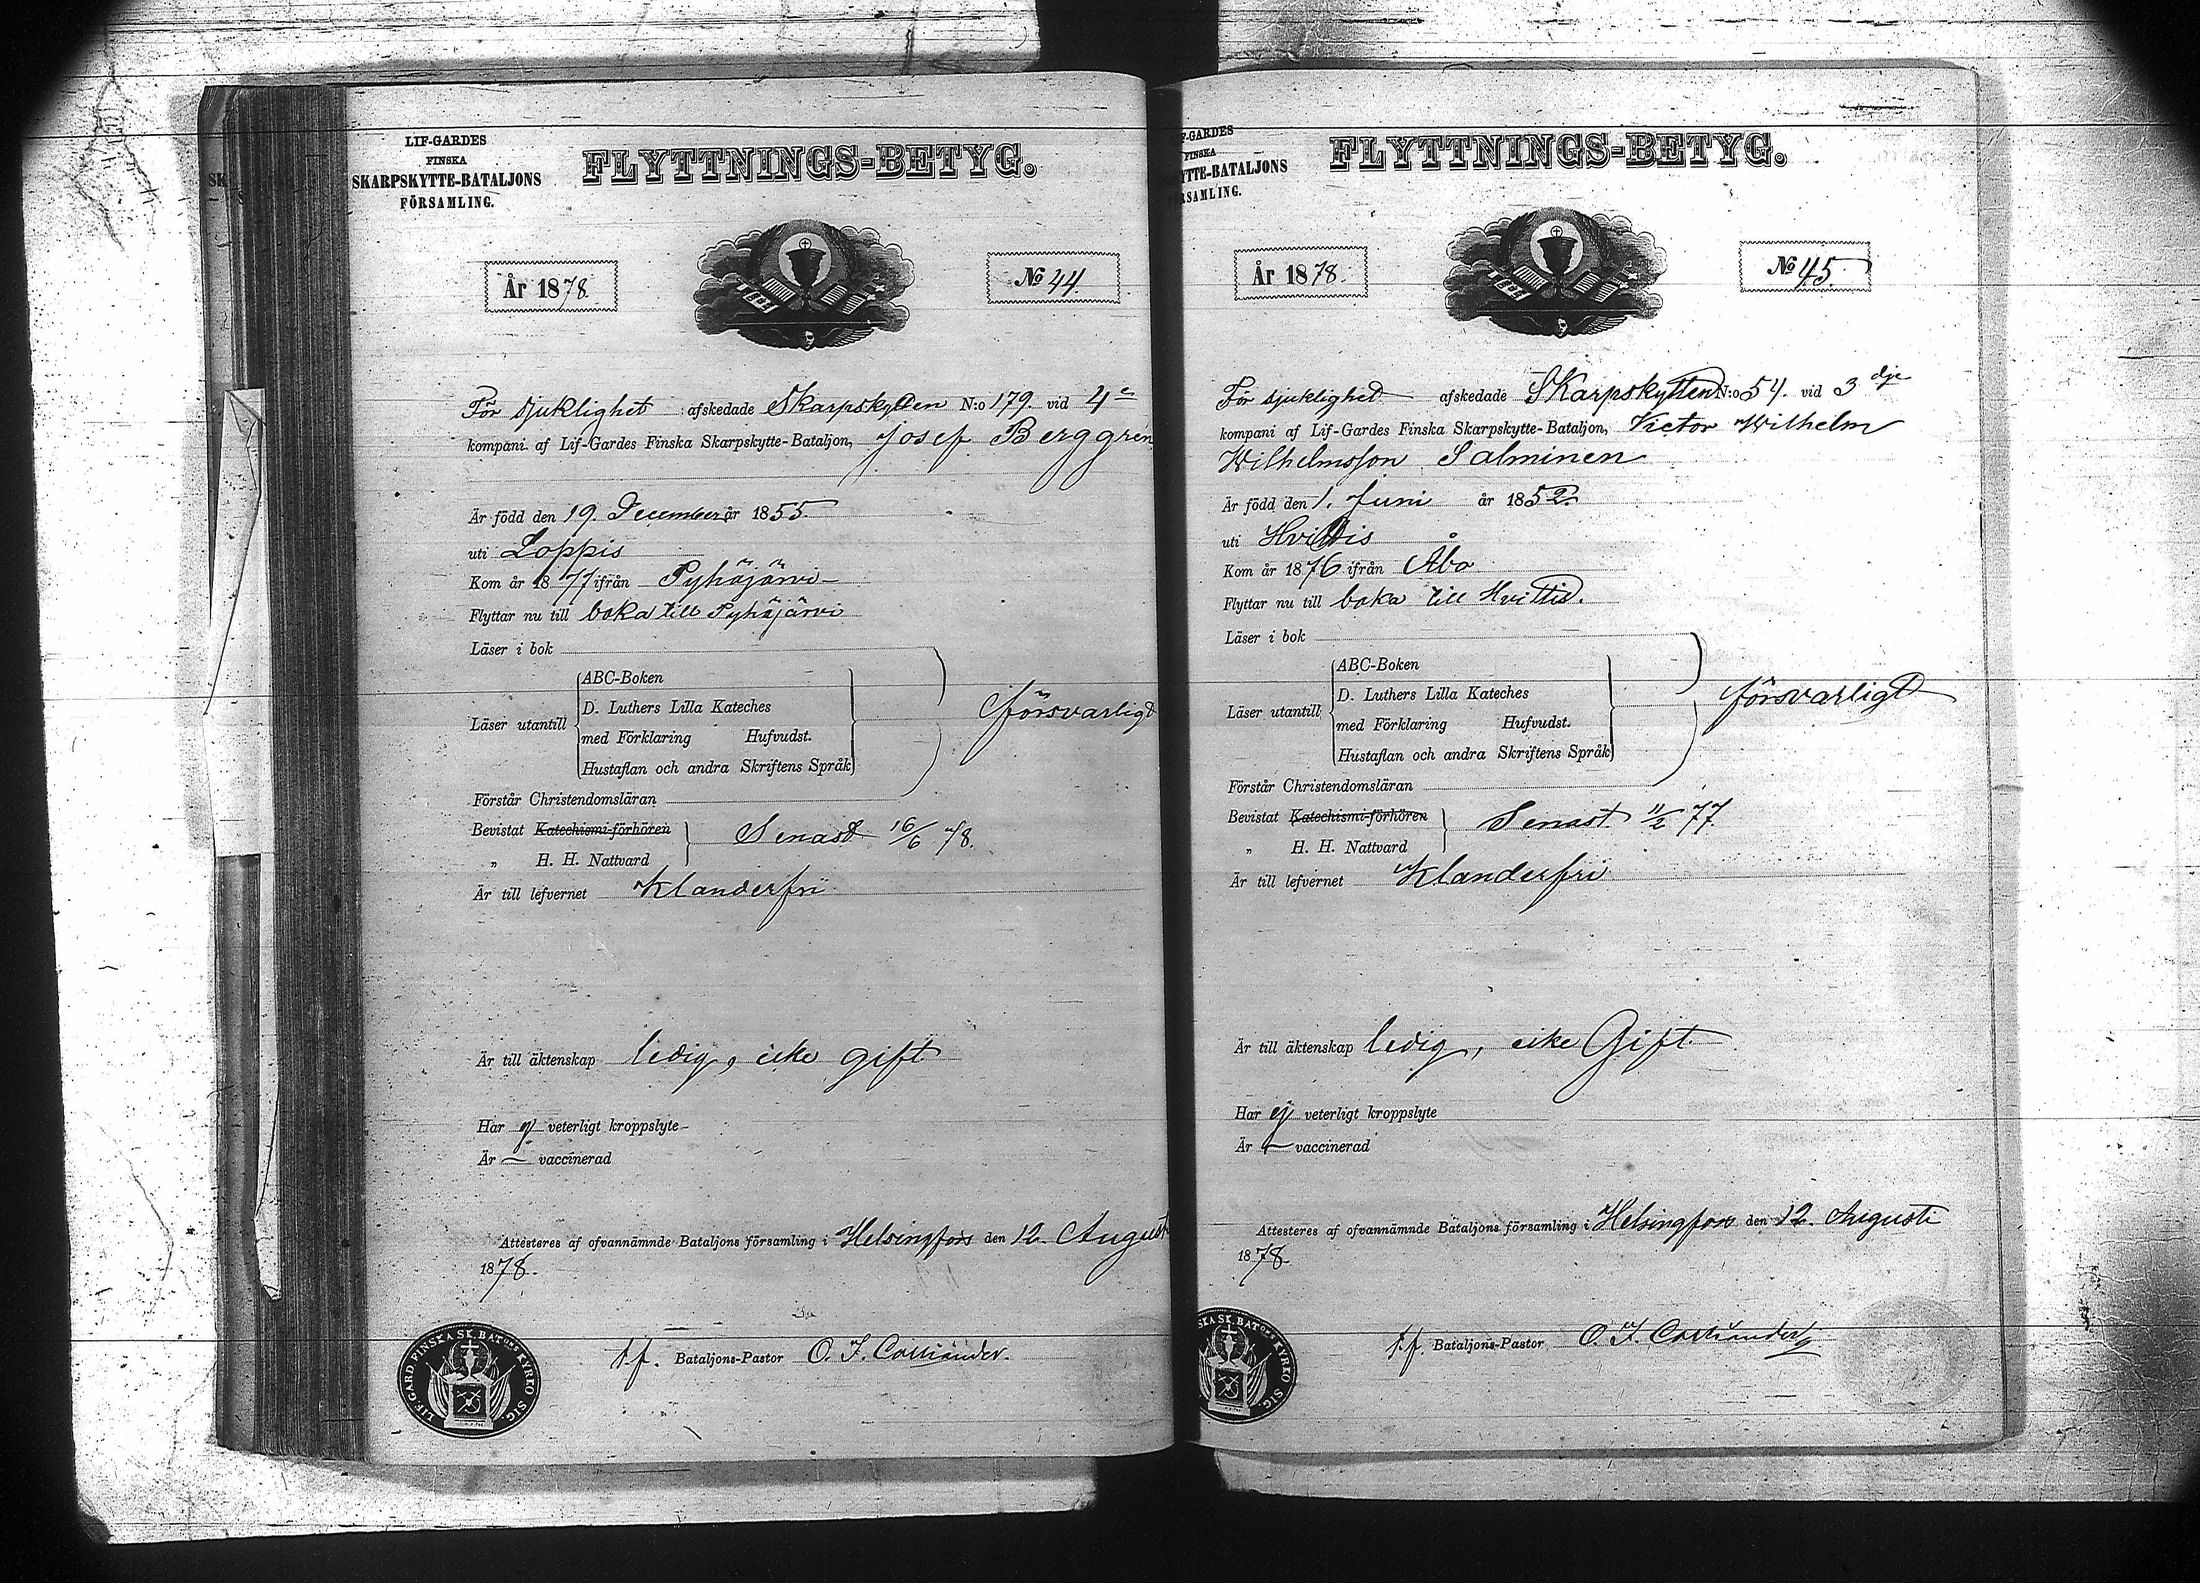 LIF-GARDES
FINSKA
SKARPSKYTTE-BATALJONS
FÖRSAMLING.
FLYTTNINGS-BETYG.
År 1878.
No 44.
För sjuklighet afskedade Skarpskytten N:o 179. vid 4e
kompani af Lif-Gardes Finska Skarpskytte-Bataljon, Josef Berggren
Är född den 19. December år 1855.
uti Loppis
Kom år 1877 ifrån Pyhäjärvi
Flyttar nu till boka till Pyhäjärvi
Läser i bok
Läser utantill
ABC-Boken
D. Luthers Lilla Kateches
med Förklaring Hufvudst.
Hustaflan och andra Skriftens Språk
försvarligt
Förstår Christendomsläran
Bevistat Katechismi-förhören
„ H. H. Nattvard
Senast 16/6 78.
Är till lefvernet Klanderfri
Är till äktenskap ledig, icke gift
Har ej veterligt kroppslyte
Är — vaccinerad
Attesteres af ofvannämnde Bataljons församling i Helsingfors den 12. August
1878.
t.f. Bataljons-Pastor O. F.
LIF.GARD.FINSKA SK.BATONS KYRKO SIG.
F-GARDES
FINSKA
YTTE-BATALJONS
RSAMLING.
FLYTTNINGS-BETYG.
År 1878.
No 45.
För sjuklighet afskedade Skarpskytten N:o 54. vid 3dje
kompani af Lif-Gardes Finska Skarpskytte-Bataljon, Victor Wilhelm
Wilhelmsson Salminen
Är född den 1. Juni år 1852.
uti Hvittis
Kom år 1876 ifrån Åbo
Flyttar nu till boka till Hvittis.
Läser i bok
Läser utantill
ABC-Boken
D. Luthers Lilla Kateches
med Förklaring Hufvudst.
Hustaflan och andra Skriftens Språk
försvarligt
Förstår Christendomsläran
Bevistat Katechismi-förhören
„ H. H. Nattvard
Senast 11/2 77.
Är till lefvernet Klanderfri
Är till äktenskap ledig, icke Gift.
Har ej veterligt kroppslyte
Är — vaccinerad
Attesteres af ofvannämnde Bataljons församling i Helsingfors den 12. Augusti
1878.
t.f. Bataljons-Pastor O. F.
SKA SK.BATONS KYRKO SIG.